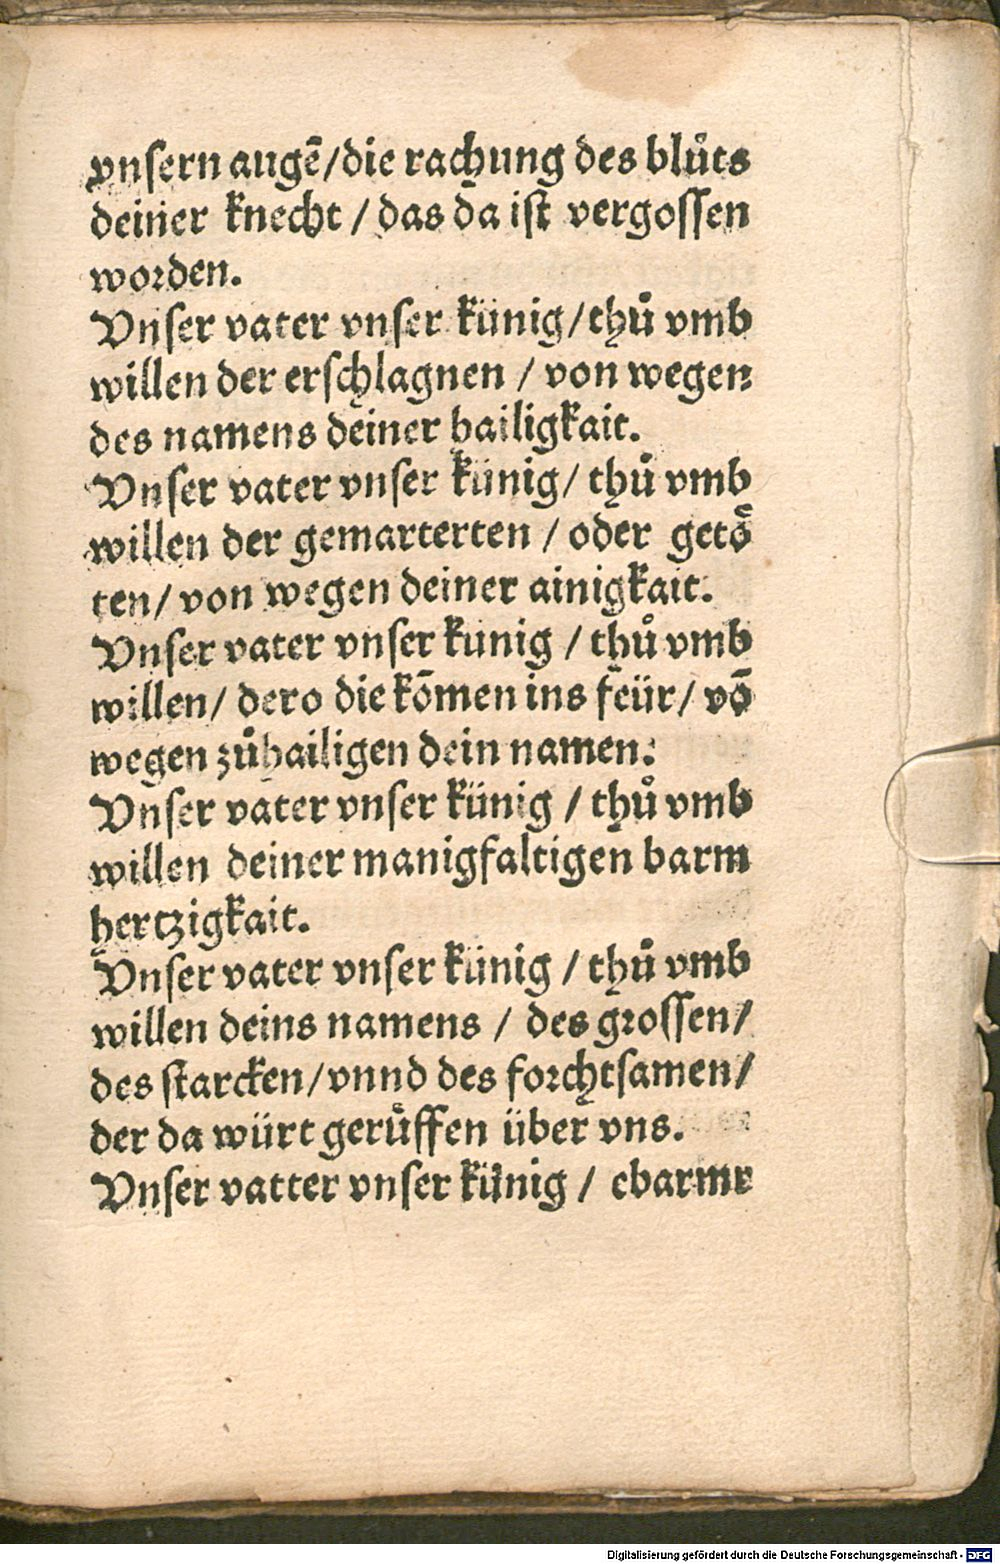 vnsern augē/die rachung des blůts
deiner knecht / das da ist vergossen
worden.
Vnser vater vnser künig/thů vmb
willen der erschlagnen / von wegen
des namens deiner hailigkait.
Vnser vater vnser künig/ thů vmb
willen der gemarterten / oder getoͤ
ten/ von wegen deiner ainigkait.
Vnser vater vnser kunig / thů vmb
willen/ dero die kōmen ins feür/ vō
wegen zůhailigen dein namen.
Vnser vater vnser künig / thů vmb
willen deiner manigfaltigen barm
hertzigkait.
Vnser vater vnser künig / thů vmb
willen deins namens / des grossen/
des starcken/vnnd des forchtsamen/
der da würt gerůffen über vns.
Vnser vatter vnser künig / ebarmr
Digitalisierung gefördert durch die Deutsche Forschungsgemeinschaft - DFG